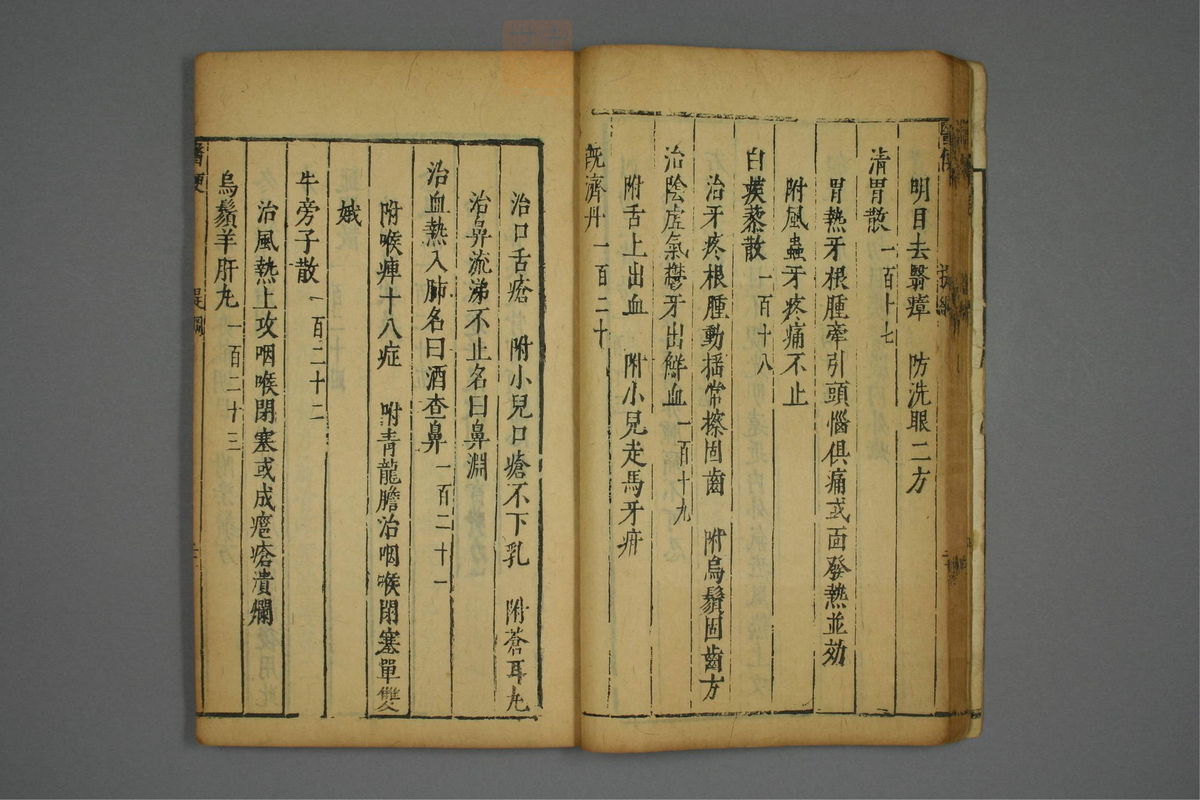 明目去翳瘴　防洗眼二方
清胃散　一百十七
胃熱牙根腫牽引頭惱俱痛或面發熱並効
附風蟲牙疼痛不止
白蒺藜散　一百十八
治牙疼根腫動搖常擦固齒　附烏鬚固齒方
治陰虛氣鬱牙出鮮血　一百十九
附舌上出血　附小兒走馬牙疳
既濟丹　一百二十
治口舌瘡　附小兒口瘡不下乳　附蒼耳丸
治鼻流涕不止名曰鼻淵
治血熱入肺名曰酒查鼻　一百二十一
附喉痺十八症　附青龍膽治咽喉閉塞單雙
娥
牛旁子散　一百二十二
治風熱上攻咽喉閉塞或成瘡潰爛
烏鬚羊肝丸　一百二十三
醫便　提綱